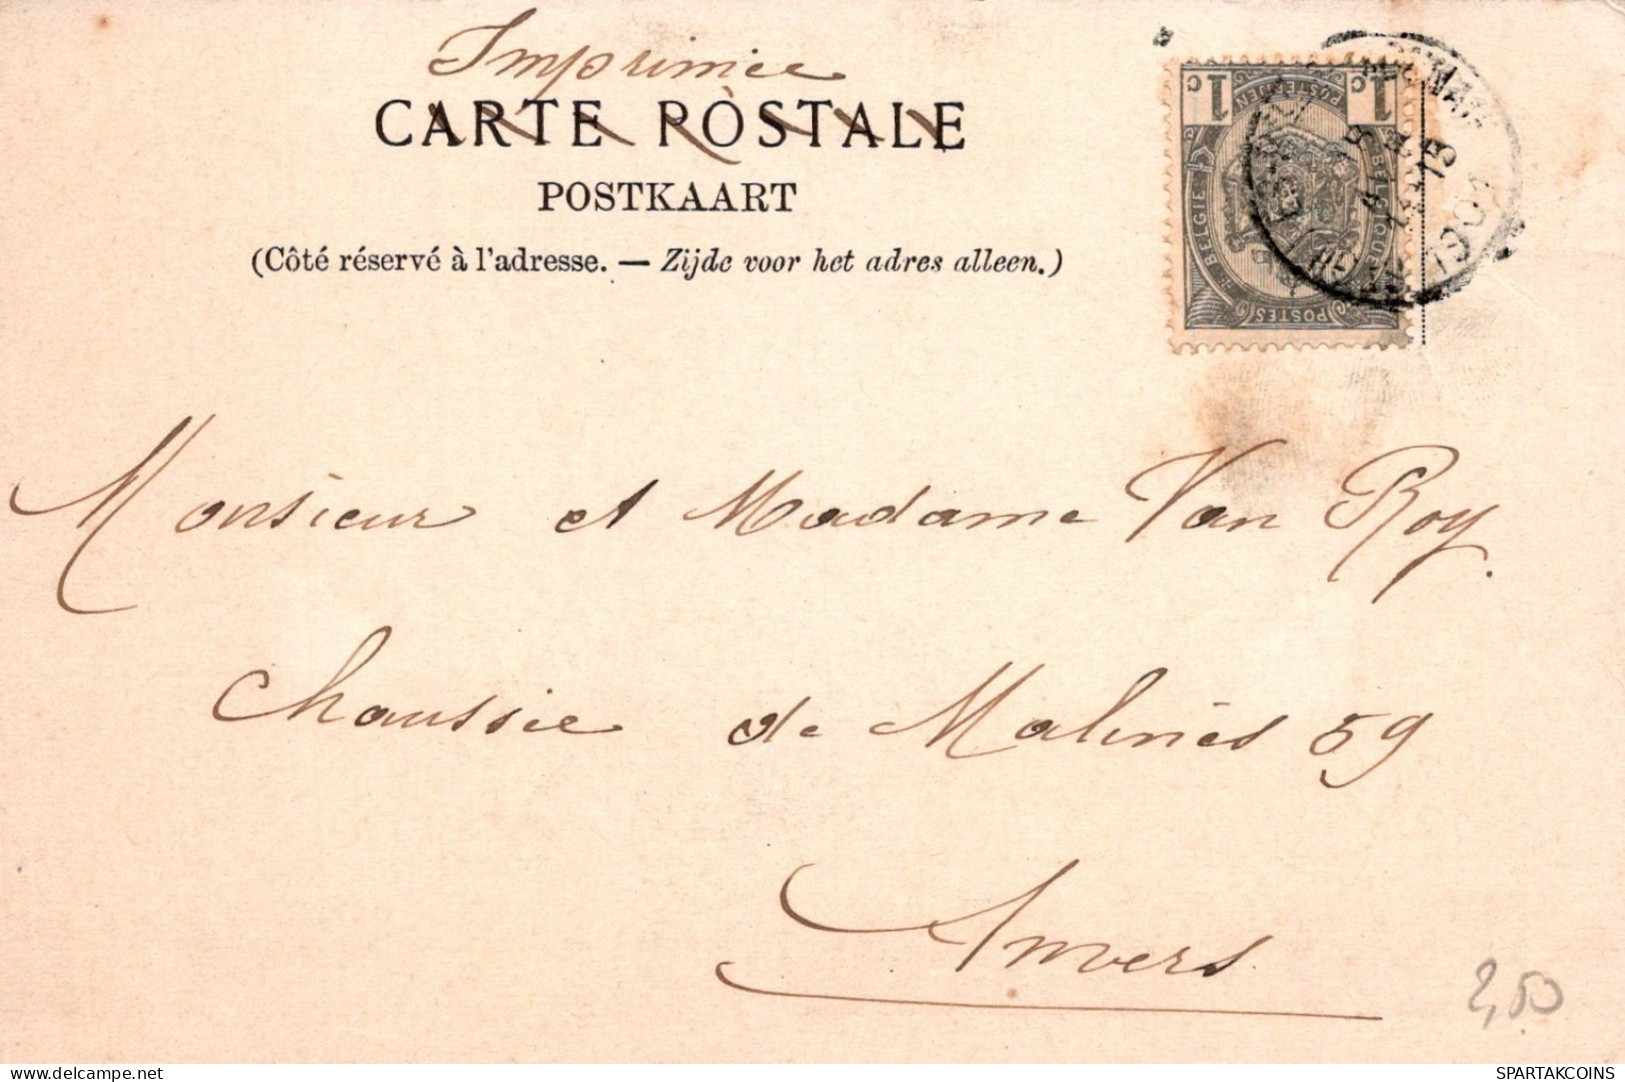 Imprimée
CARTE POSTALE
POSTKAART
(Côté réservé à l'adresse. — Zijde voor het adres alleen.)
1c 1c
POSTERIJEN
BELGIE BELGIQUE
POSTES
Monsieur et Madame Van Roy.
Chaussée de Malines 59
Anvers
2,50
delcampe.net
SPARTAKCOINS